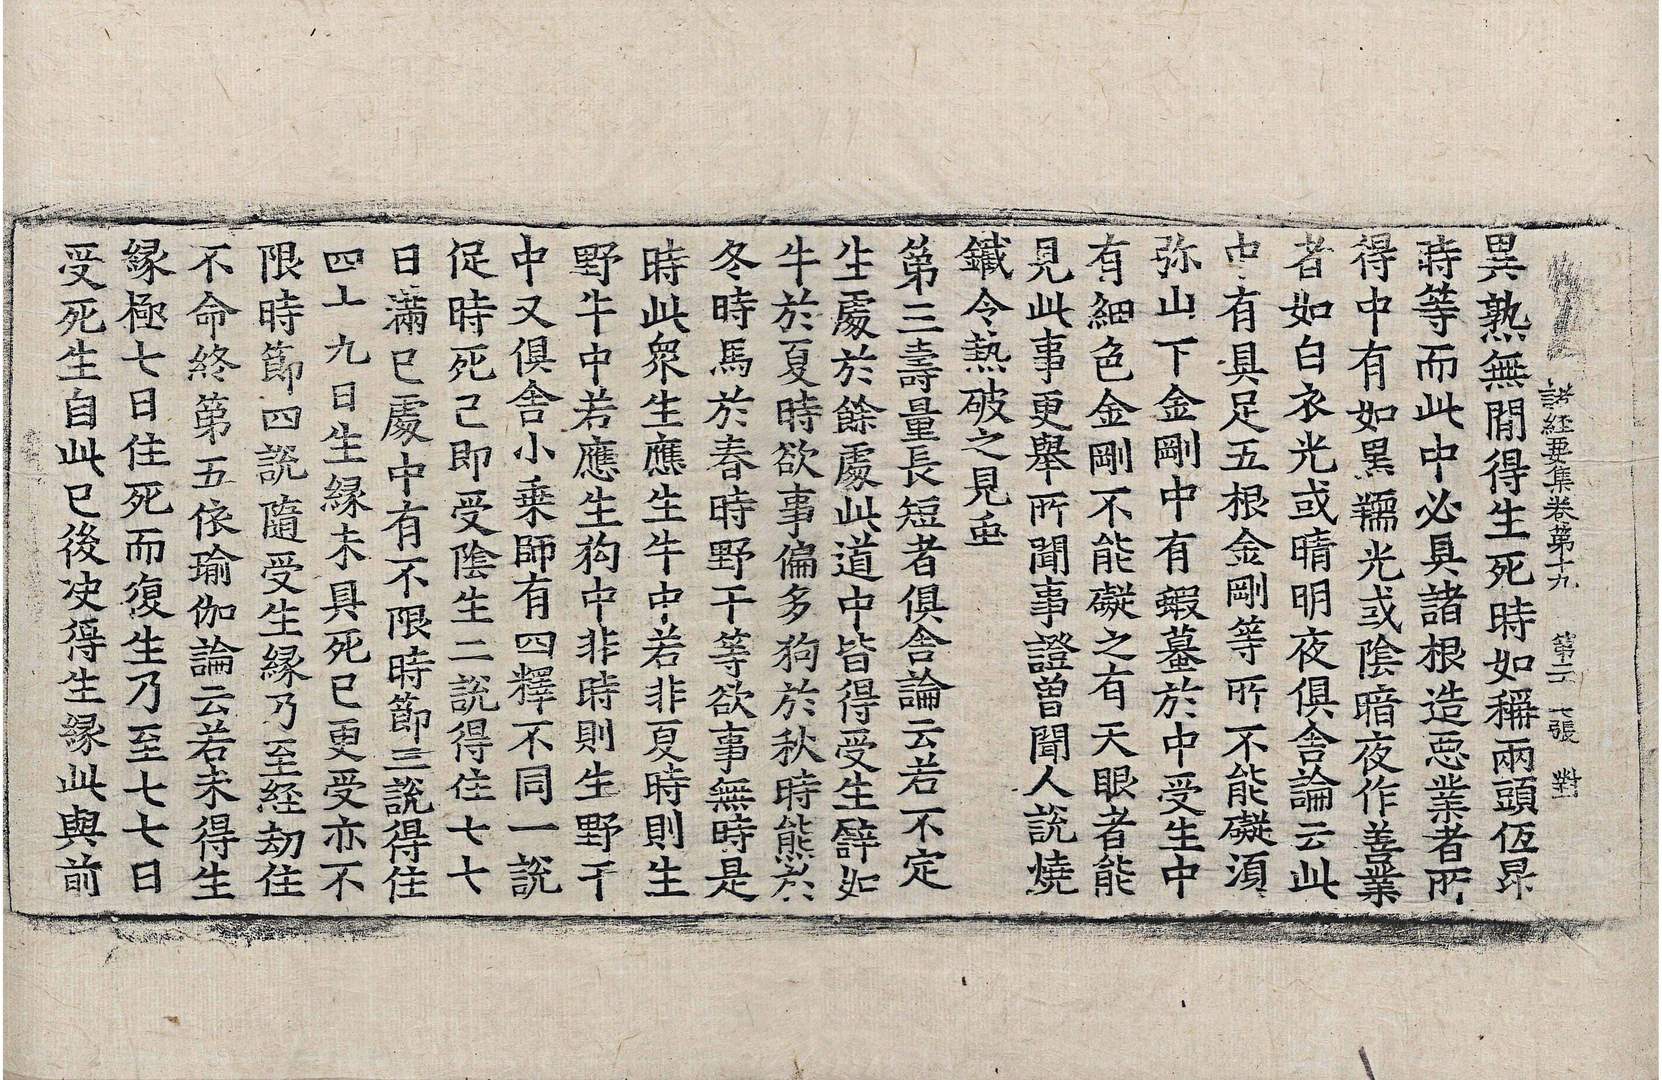 諸經要集卷第十九 第二七張 對
異熟無閒得生死時如稱兩頭伭昂
時等而此中必具諸根造惡業者所
得中有如黑糯光或陰暗夜作善業
者如白衣光或晴明夜俱舍論云此
中有具足五根金剛等所不能礙湏
弥山下金剛中有蝦蟇於中受生中
有細色金剛不能礙之有天眼者能
見此事更舉所聞事證曽聞人說燒
鐵令熱破之見虫
第三壽量長短者俱舍論云若不定
生處於餘處此道中皆得受生辟如
牛於夏時欲事偏多狗於秋時熊於
冬時馬於春時野干等欲事無時是
時此衆生應生牛中若非夏時則生
野牛中若應生狗中非時則生野干
中又俱舍小乗師有四釋不同一說
促時死已即受陰生二說得住七七
日滿已處中有不限時節三說得住
四十九日生縁未具死已更受亦不
限時節四說隨受生縁乃至經劫住
不命終第五依瑜伽論云若未得生
縁極七日住死而復生乃至七七日
受死生自此已後决得生縁此與前